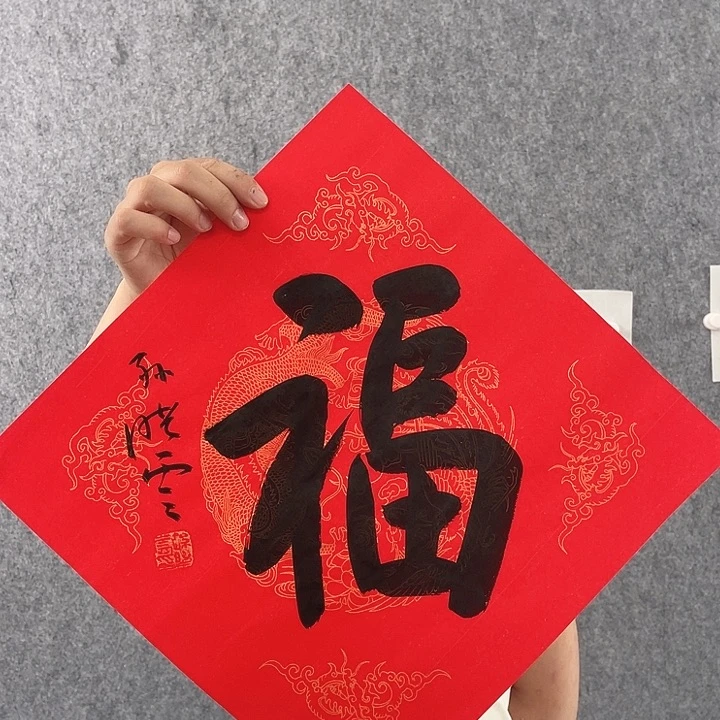 福
孙晓云